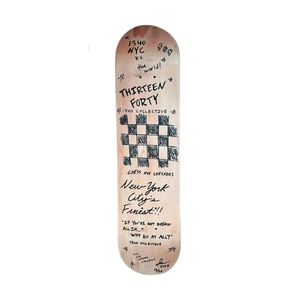 1340
NYC
vs.
the world!
THIRTEEN
FORTY
1340 COLLECTIVE
CHESS NOT CHECKERS
New York
City's
Finest!!
"IF YOU'RE NOT GOING
ALL IN...
WHY GO AT ALL?"
1340 COLLECTIVE